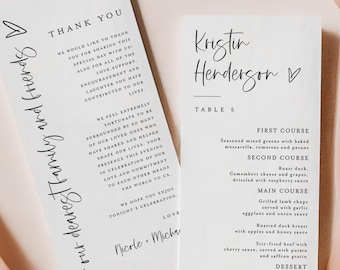 THANK YOU
WE WOULD LIKE TO THANK
YOU FOR SHARING THIS
SPECIAL DAY WITH US!
ALSO FOR ALL OF THE
LOVE, SUPPORT,
ENCOURAGEMENT AND
LAUGHTER YOU HAVE
CONTRIBUTED TO OUR
LIVES.
WE FEEL EXTREMELY
FORTUNATE TO BE
SURROUNDED BY SO MANY
OF OUR LOVED ONES WHO
HAVE SHARED AND HELPED
SHAPE OUR LIVES. YOUR
PRESENCE THIS EVENING
IN CELEBRATION OF OUR
LOVE AND COMMITMENT
TO EACH OTHER MEANS
THE WORLD TO US.
WE HOPE YOU ENJOY
TONIGHT'S CELEBRATION.
LOVE
Nicole + Micha
our dearest family and friends
Kristin
Henderson
TABLE 5
FIRST COURSE
Seasoned mixed greens with baked
mozzarella, tomatoes and prosciutto.
SECOND COURSE
Roast duck,
Camembert cheese and grapes,
drizzled with raspberry sauce
MAIN COURSE
Grilled lamb chops
served with garlic,
eggplant and onion sauce
Roasted duck breast
with apples and honey sauce
Stir-fried beef with
cherry sauce, served with potato
and saffron gratin
DESSERT